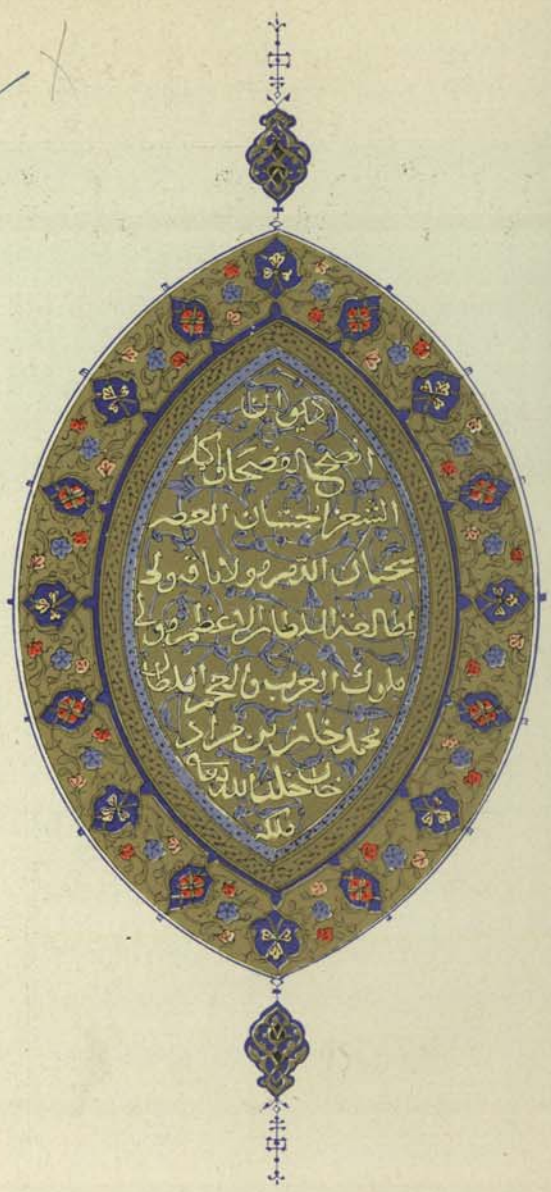 ديوان
افصح الفصحا اكمل
الشعرا حسان العصر
سحبان الدهر مولانا قبولى
لمطالعة السلطان الاعظم مولى
ملوك العرب والعجم السلطان
محمد خان بن مراد
خان خلد الله
ملكه